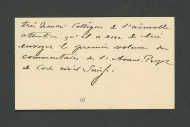 très honoré Collègue de l'aimable
attention qu'il a eue de lui
envoyer le premier volume du
commentaire de l'Avant-Projet
de Code civil Suisse.